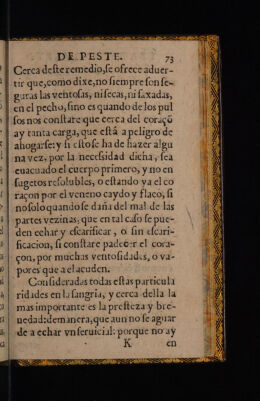 DE PESTE. 73
Cerca deste remedio, se ofrece aduer-
tir que, como dixe, no siempre son se-
guras las ventosas, ni secas, ni saxadas,
en el pecho, sino es quando de los pul
sos nos constare que cerca del coraçõ
ay tanta carga, que està a peligro de
ahogarse: y si esto se ha de hazer algu
na vez, por la necessidad dicha, sea
euacuado el cuerpo primero, y no en
sugetos resolubles, o estando ya el co
raçon por el veneno caydo y flaco, si
no solo quando se daña del mal de las
partes vezinas, que en tal caso se pue-
den echar y escarificar, o sin escari-
ficacion, si constare padecer el cora-
çon, por muchas ventosidades, o va-
pores que a el acuden.
Consideradas todas estas particula
ridades en la sangria, y cerca della la
mas importante es la presteza y bre-
uedad: de manera, que aun no se aguar
de a echar vn seruicial: porque no ay
K en